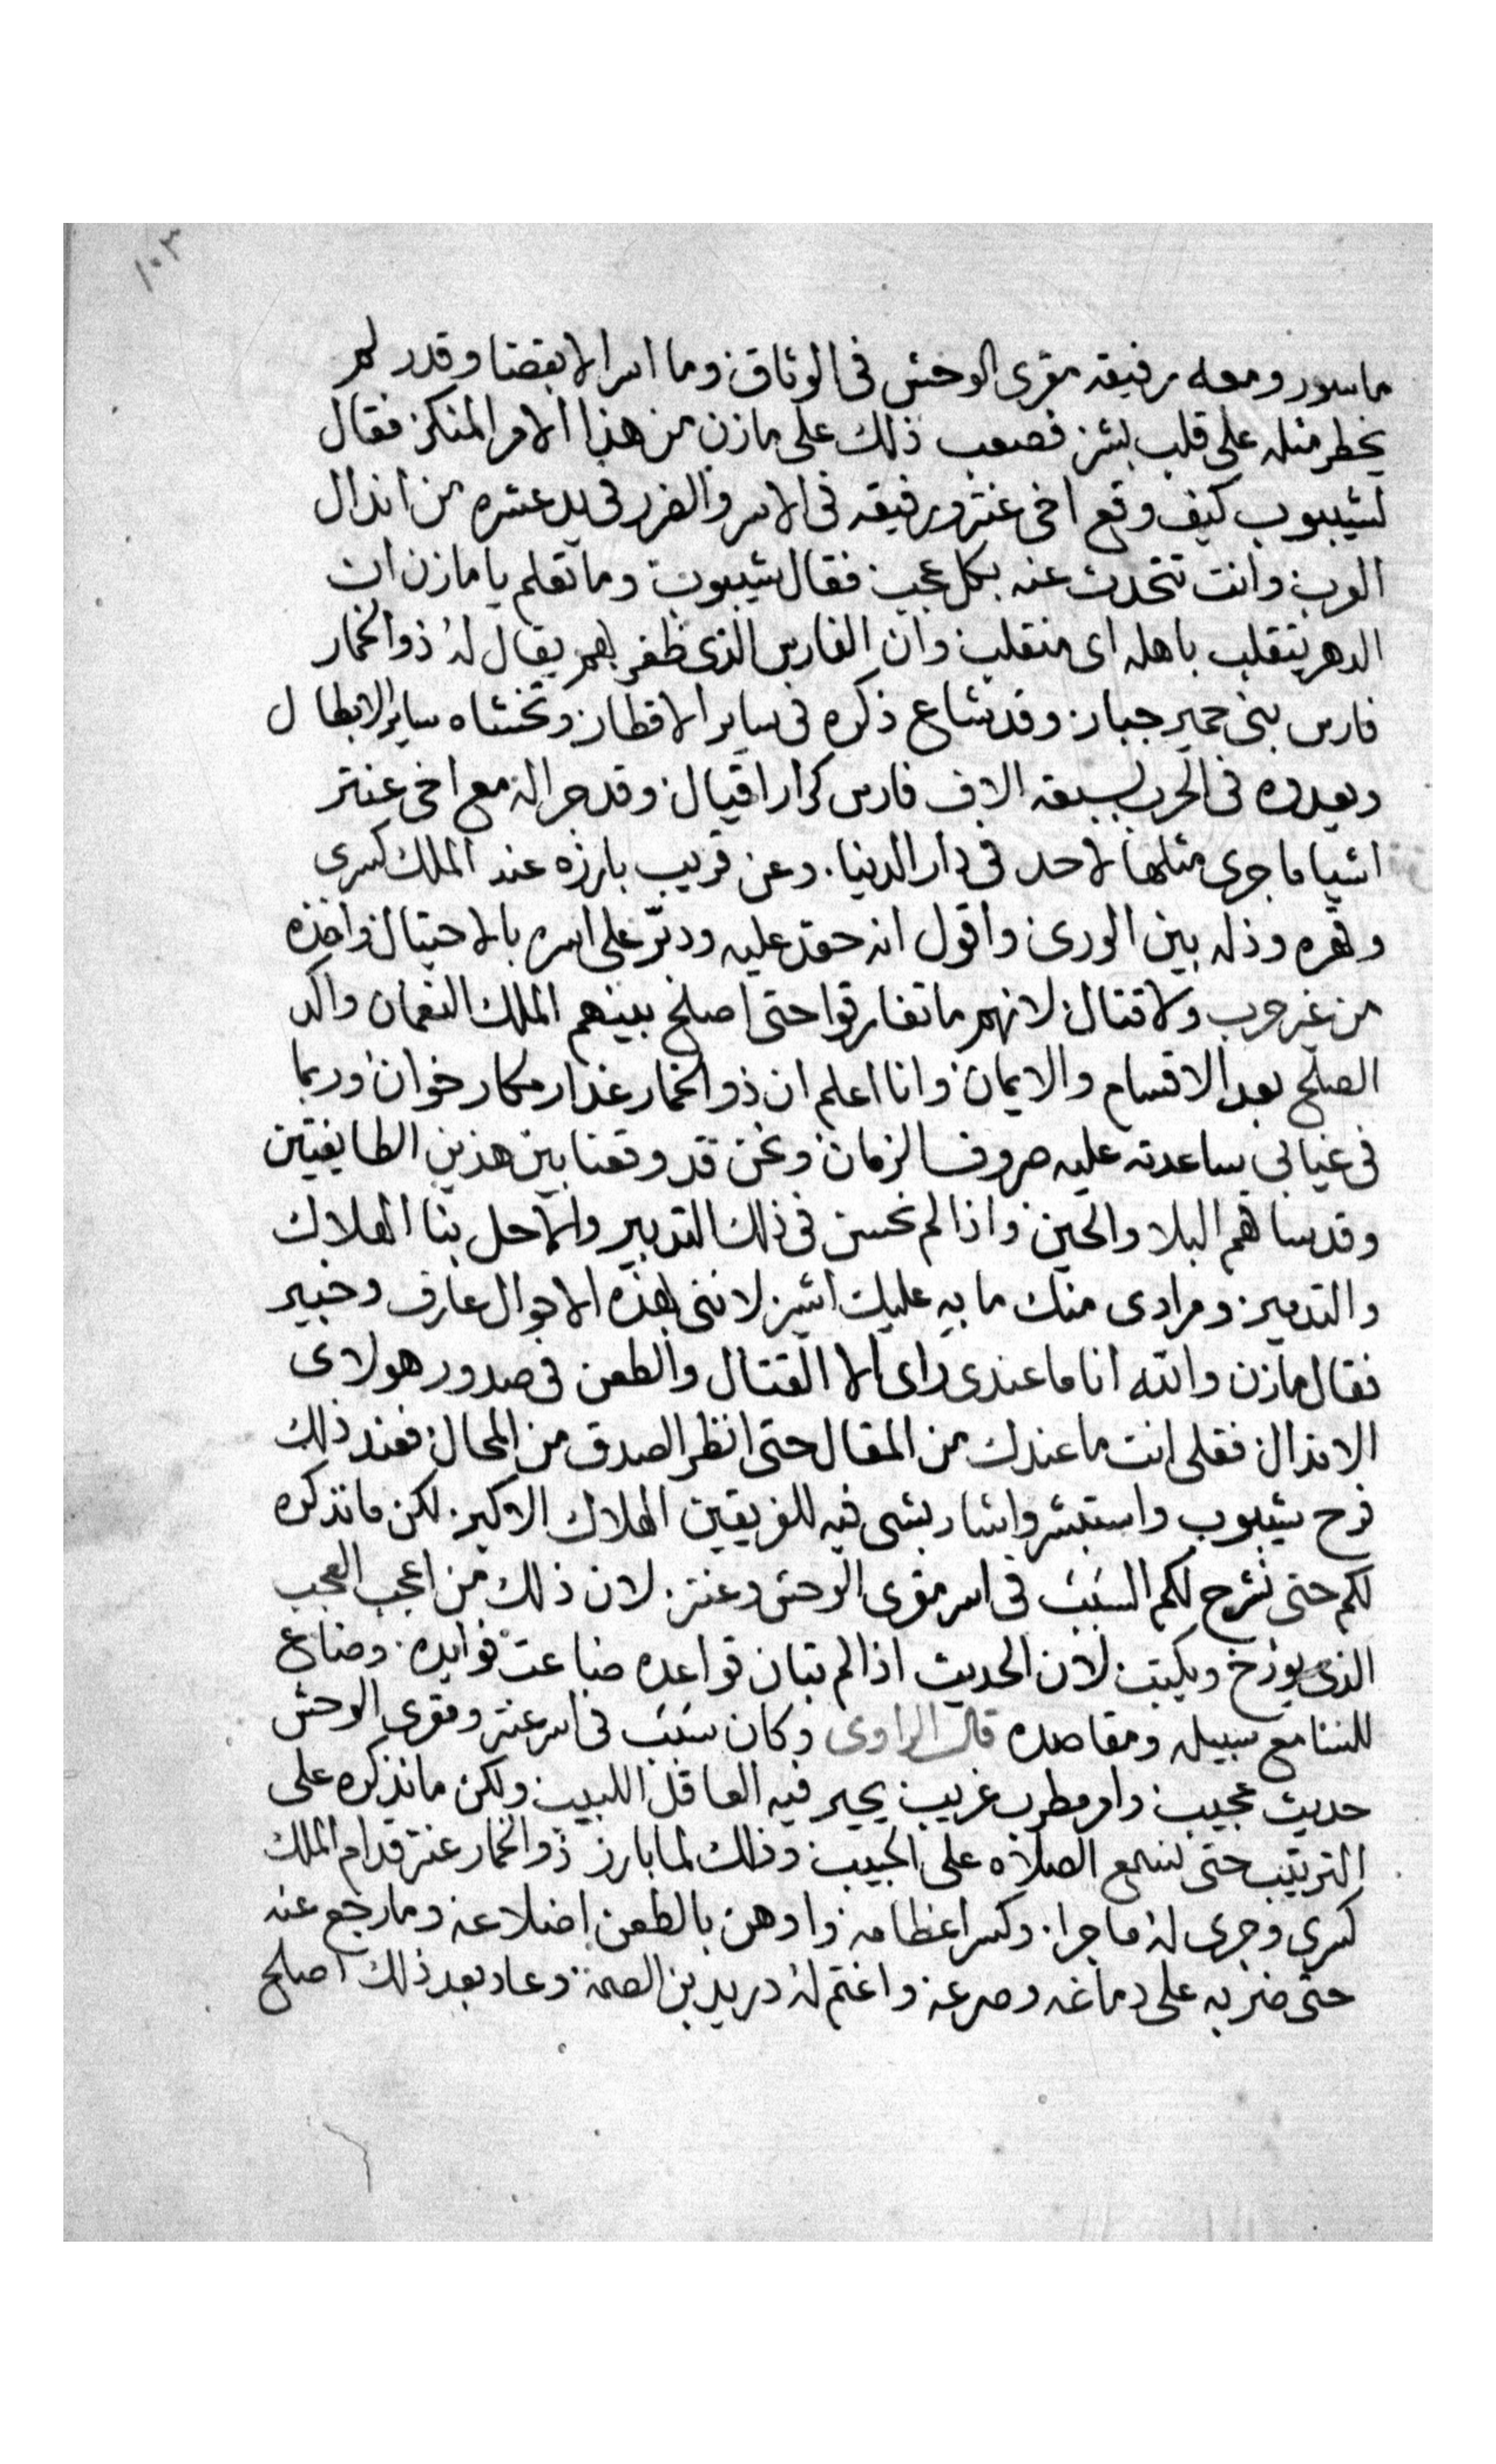 ١٠٣
ماسور ومعه رفيقه مقرى الوحش فى الوثاق وما اسرا الا بقضا وقدر لم
يخطر مثله على قلب بشر فصعب ذلك على مازن من هذا الامر المنكر فقال
لشيبوب كيف وقع اخى عنتر ورفيقه فى الاسر والضرر فى يد عشره من انذال
العرب وانت تتحدث عنه بكل عجب فقال شيبوب وما تعلم يا مازن ان
الدهر يتقلب باهله اى منقلب وان الفارس الذى ظفر بهم يقال له ذو الخمار
فارس بنى حمير جبار وقد شاع ذكره فى ساير الاقطار وتخشاه ساير الابطال
ويعدوه فى الحرب بسبعة الاف فارس كرار اقيال وقد جرا له مع اخى عنتر
اشيا ما جرى مثلها لاحد فى دار الدنيا وعن قريب بارزه عند الملك كسرى
وقهره وذله بين الورى واقول انه حقد عليه ودبر على اسره بالاحتيال واخذه
من غير حرب ولا قتال لانهم ما تفارقوا حتى اصلح بينهم الملك النعمان واكد
الصلح بعد الاقسام والايمان وانا اعلم ان ذو الخمار غدار مكار خوان وربما
فى غيابى ساعدته عليه صروف الزمان ونحن قد وقعنا بين هذين الطايفتين
وقد ساهم البلا والحين واذا لم نحسن فى ذلك التدبير والا حل بنا الهلاك
والتدمير ومرادى منك ما به عليك اشير لاننى بهذه الاحوال عارف وخبير
فقال مازن والله انا ما عندى راى الا القتال والطعن فى صدور هولاى
الانذال فقلى انت ما عندك من المقال حتى انظر الصدق من المحال فعند ذلك
فرح شيبوب واستبشر واشار بشى فيه للفريقين الهلاك الاكبر لكن ما نذكره
لكم حتى نشرح لكم السبب فى اسر مقرى الوحش وعنتر لان ذلك من اعجب العجب
الذى يورخ ويكتب لان الحديث اذا لم تبان قواعده ضاعت فوايده وضاع
للسامع سبيله ومقاصده قال الراوى وكان سبب فى اسر عنتر ومقرى الوحش
حديث عجيب وامر مطرب غريب يحير فيه العاقل اللبيب ولكن ما نذكره على
الترتيب حتى نسمع الصلاه على الحبيب وذلك لما بارز ذو الخمار عنتر قدام الملك
كسرى وجرى له ما جرا وكسر اعظامه واوهن بالطعن اضلاعه وما رجع عنه
حتى ضربه على دماغه وصرعه واغتم له دريد بن الصمة وعاد بعد ذلك اصلح